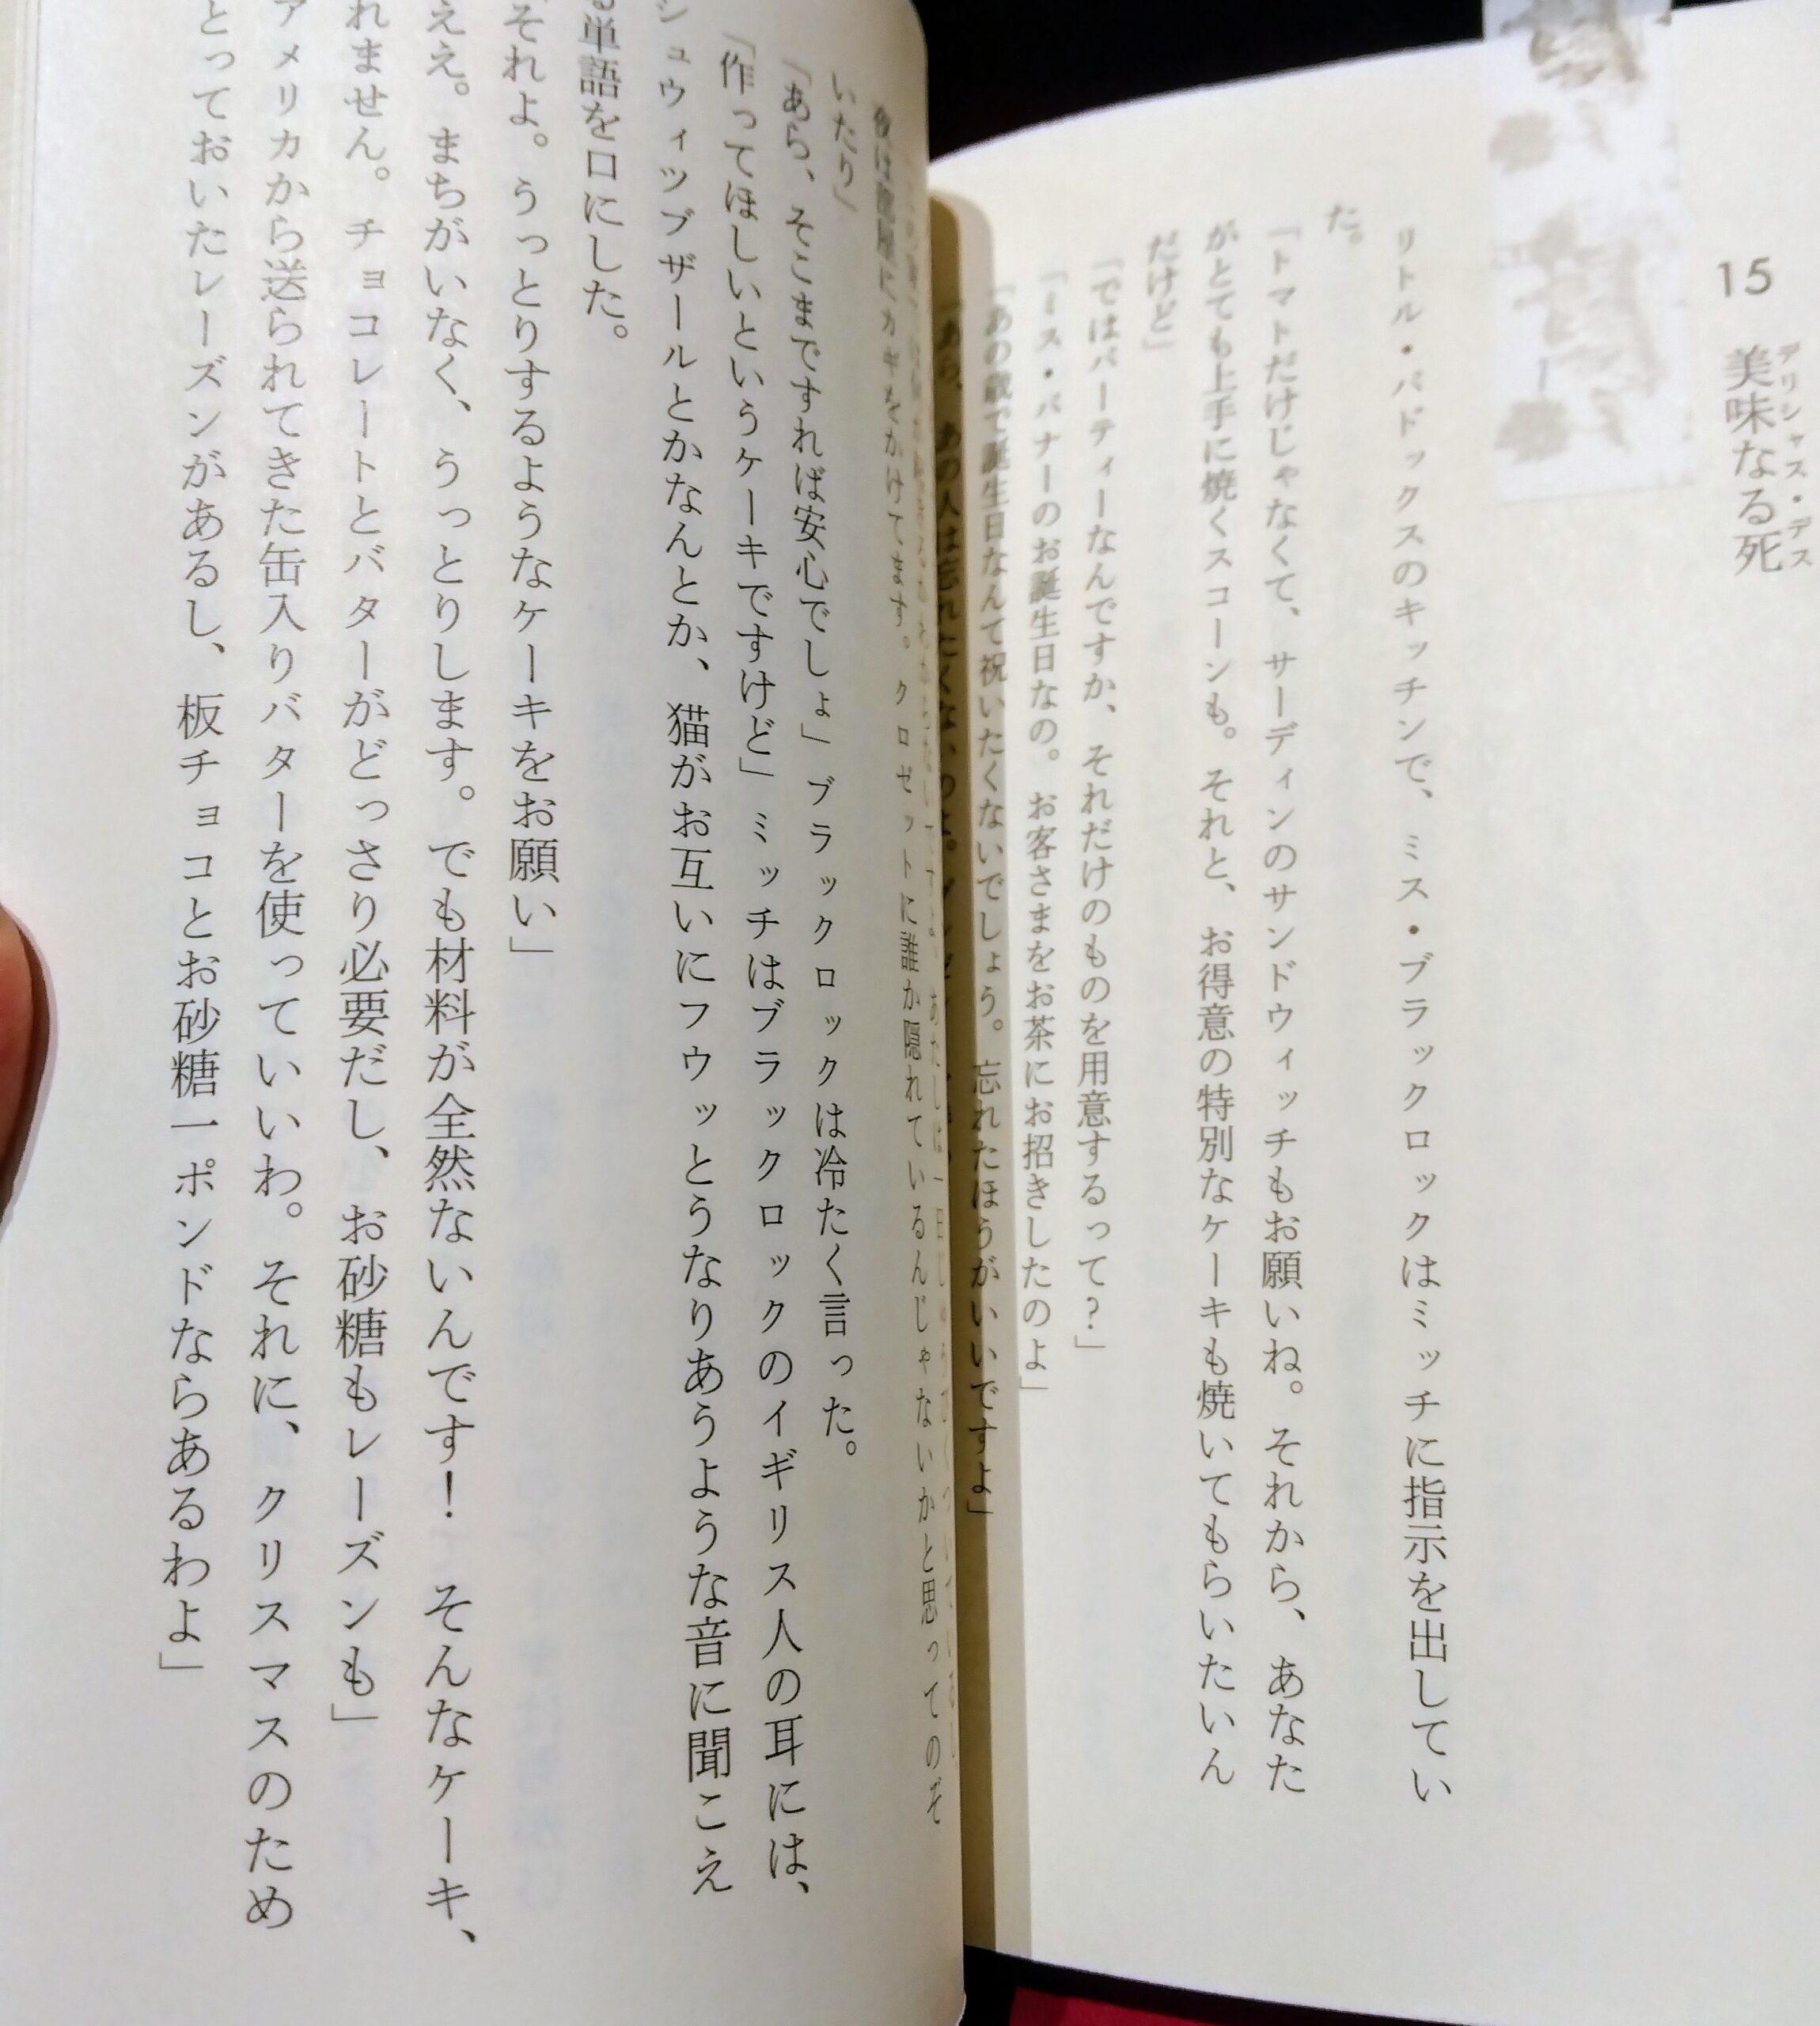 15 美味なる死
デリシャス・デス
リトル・パドックスのキッチンで、ミス・ブラックロックはミッチに指示を出してい
た。
「トマトだけじゃなくて、サーディンのサンドウィッチもお願いね。それから、あなた
がとても上手に焼くスコーンも。それと、お得意の特別なケーキも焼いてもらいたいん
だけど」
「ではパーティーなんですか、それだけのものを用意するって？」
「ミス・バナーのお誕生日なの。お客さまをお茶にお招きしたのよ」
「あの歳で誕生日なんて祝いたくないでしょう。忘れたほうがいいですよ」
「あら、あの人は忘れたくないのよ。
にカギをかけてます。クロゼットに誰か隠れているんじゃないかと思ってのぞ
いたり」
「あら、そこまですれば安心でしょ」ブラックロックは冷たく言った。
「作ってほしいというケーキですけど」ミッチはブラックロックのイギリス人の耳には、
シュウィッツブザールとかなんとか、猫がお互いにフウッとうなりあうような音に聞こえ
る単語を口にした。
それよ。うっとりするようなケーキをお願い」
ええ。まちがいなく、うっとりします。でも材料が全然ないんです！　そんなケーキ、
れません。チョコレートとバターがどっさり必要だし、お砂糖もレーズンも」
アメリカから送られてきた缶入りバターを使っていいわ。それに、クリスマスのため
とっておいたレーズンがあるし、板チョコとお砂糖一ポンドならあるわよ」